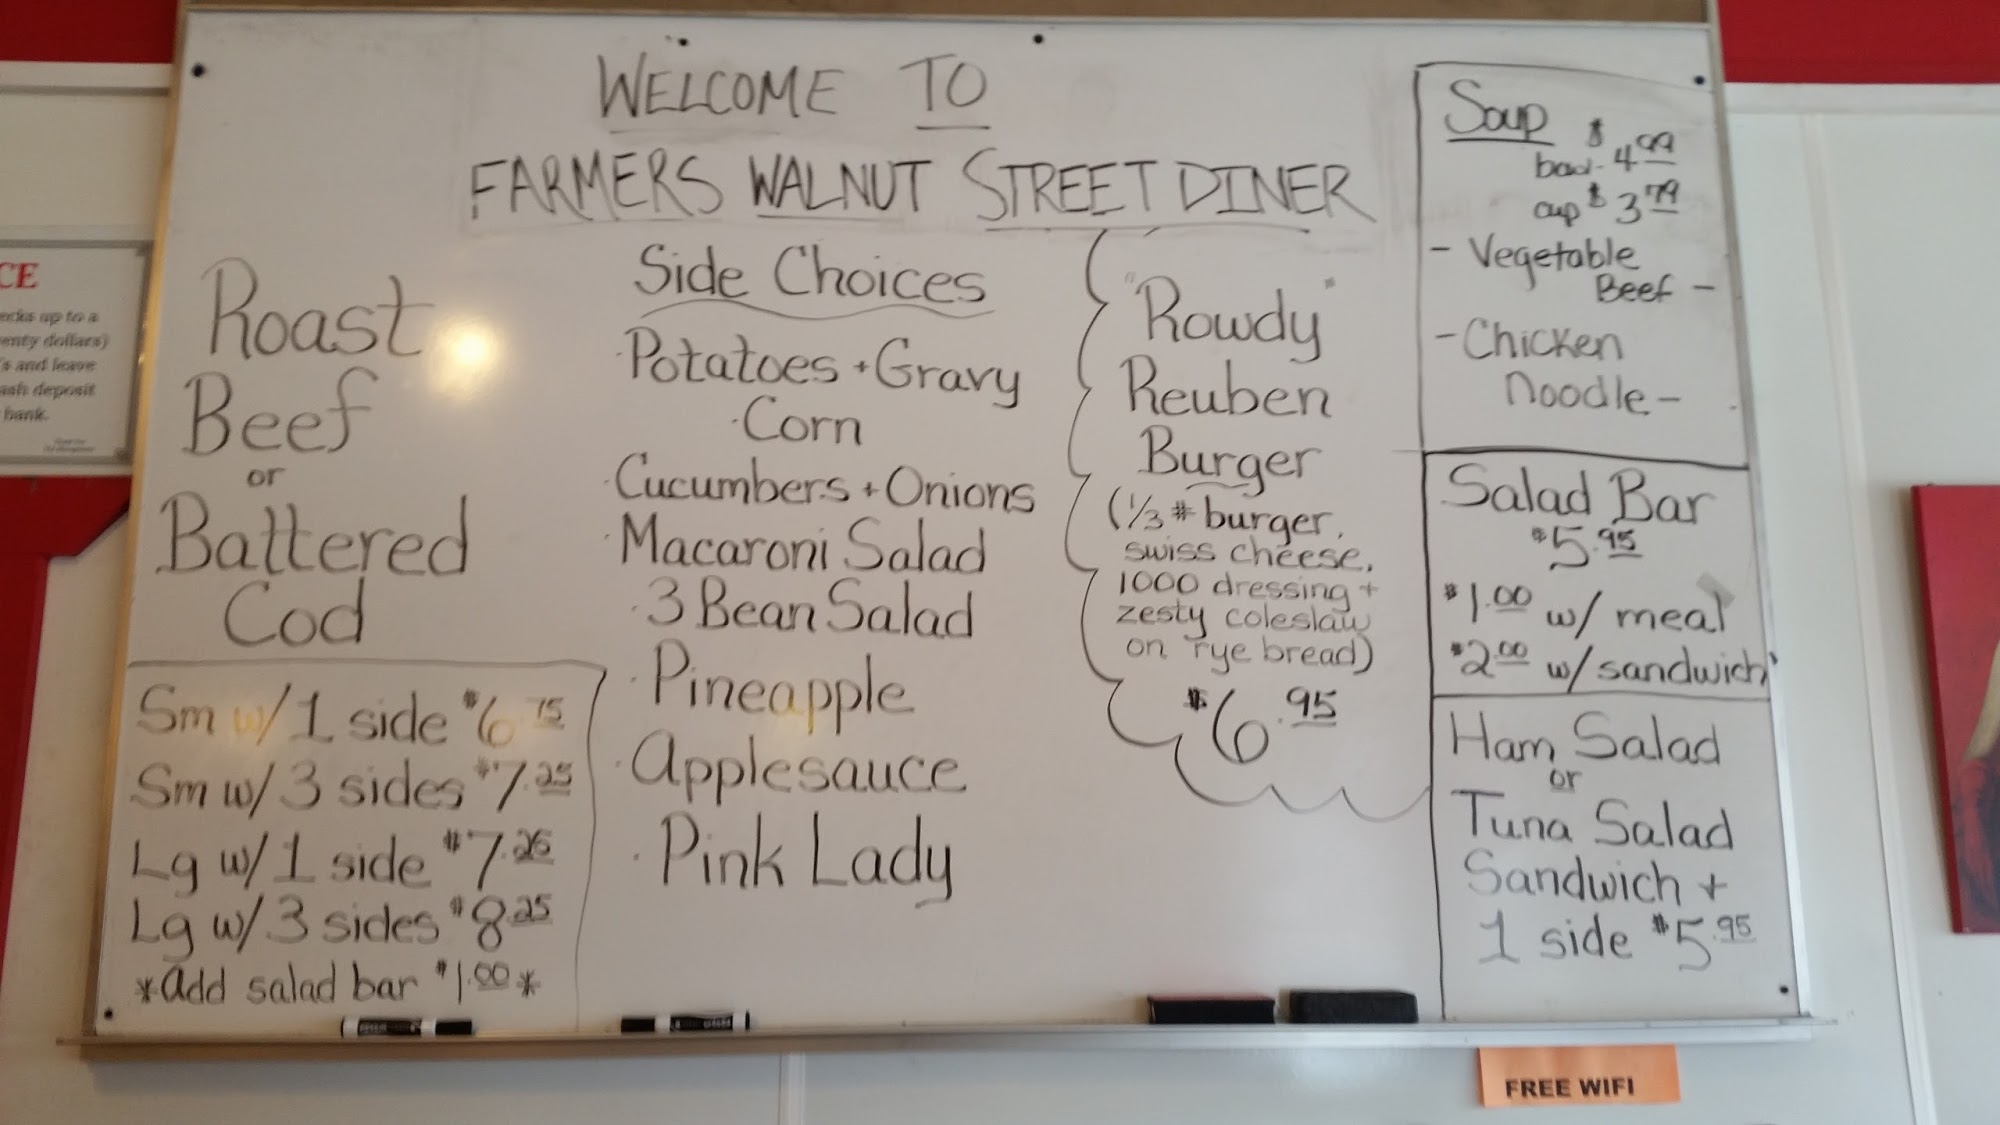 WELCOME TO
FARMERS WALNUT STREET DINER
Roast
Beef
or
Battered
Cod
Sm w/ 1 side $6.75
Sm w/ 3 sides $7.25
Lg w/ 1 side $7.25
Lg w/ 3 sides $8.25
*Add salad bar $1.00*
Side Choices
·Potatoes + Gravy
·Corn
·Cucumbers + Onions
·Macaroni Salad
·3 Bean Salad
·Pineapple
·Applesauce
·Pink Lady
"Rowdy"
Reuben
Burger
(1/3 # burger,
swiss cheese,
1000 dressing +
zesty coleslaw
on rye bread)
$6.95
Soup
bowl - $4.99
cup $3.79
- Vegetable
Beef -
- Chicken
Noodle -
Salad Bar
$5.95
$1.00 w/ meal
$2.00 w/ sandwich
Ham Salad
or
Tuna Salad
Sandwich +
1 side $5.95
CE
up to a
dollars)
and leave
deposit
bank.
FREE WIFI